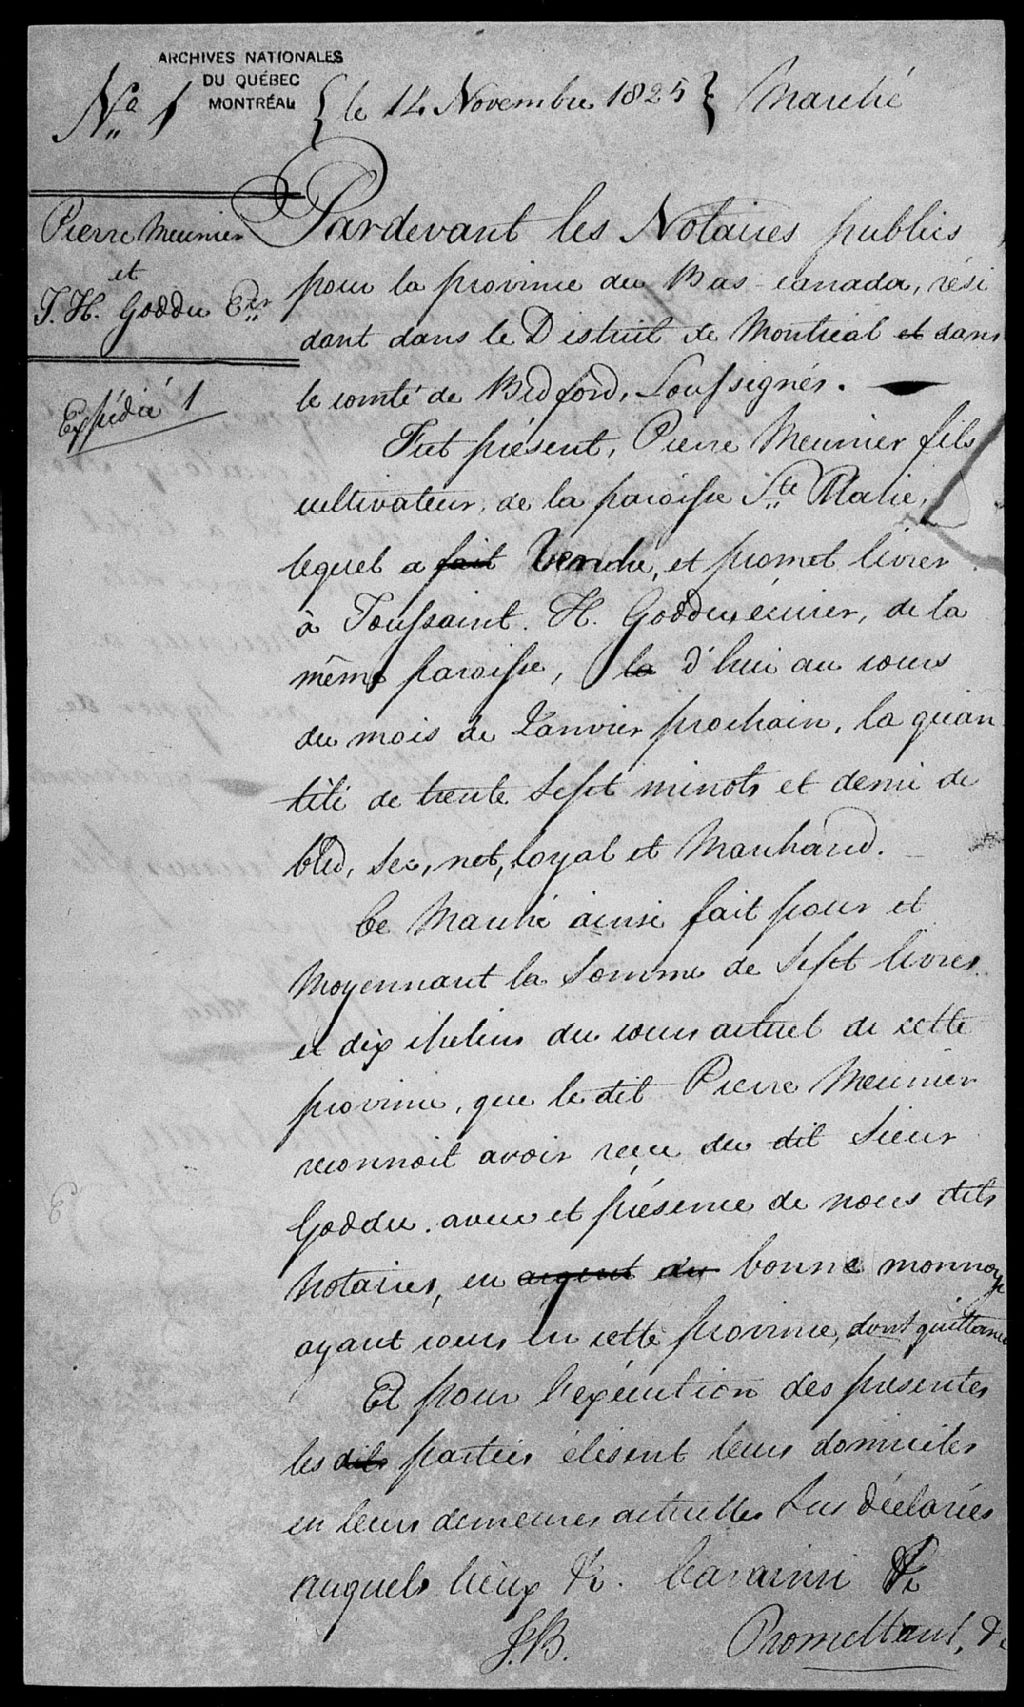 ARCHIVES NATIONALES
DU QUÉBEC
MONTRÉAL
No 1 { le 14 Novembre 1825 } Marché
Pierre Meunier
et
T. H. Goddu Ecr
Expédié 1
Pardevant les Notaires publics
pour la province du Bas-canada, rési
dant dans le District de Montréal et dans
le comté de Bedford, Soussignés.
Fut présent, Pierre Meunier fils
cultivateur, de la paroisse Ste Marie,
lequel a fait Vendu, et promet livrer
à Toussaint. H. Goddu, écuier, de la
même paroisse, la d'hui au cours
du mois de Janvier prochain, la quan
tité de trente Sept minots et demi de
bled, sec, net, loyal et Marchand.
Ce Marché ainsi fait pour et
Moyennant la Somme de Sept livres
et dix chelins du cours actuel de cette
province, que le dit Pierre Meunier
reconnoit avoir reçu du dit Sieur
Goddu. avec et présence de nous dits
Notaires, en argent du bonne monnoye
ayant cours en cette province, dont quittance
Et pour l'exécution des présentes
les dits parties élisent leurs domiciles
en leurs demeures actuelles Sus déclarées
auquels lieux &c. Car ainsi &c
J.B. Promettant, &c